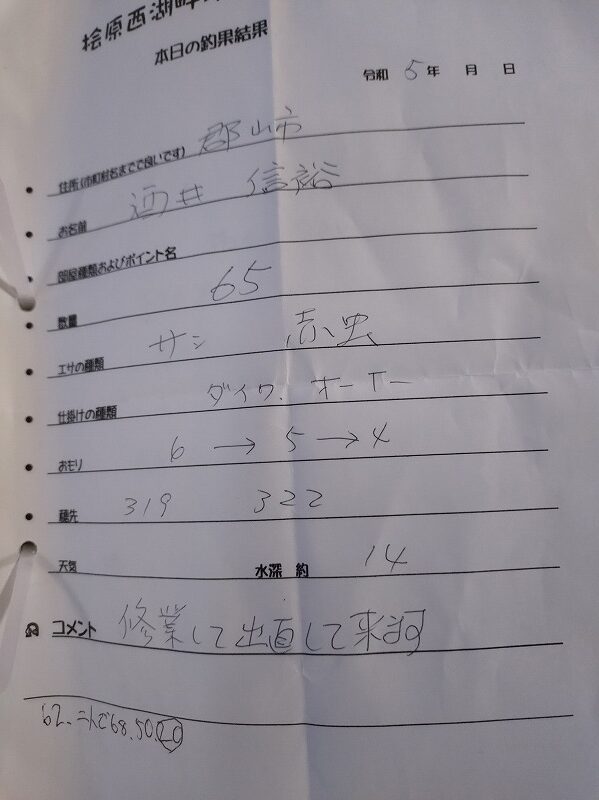 桧原西湖畔
本日の釣果結果
令和 5年 月 日
住所(市町村名までで良いです) 郡山市
お名前 酒井 信裕
部屋種類およびポイント名
数量 65
エサの種類 サシ 赤虫
仕掛けの種類 ダイワ. オーナー
おもり 6 → 5 → 4
穂先 319 322
天気 水深 約 14
コメント 修業して出直して来ます
62、二人で68.50.20